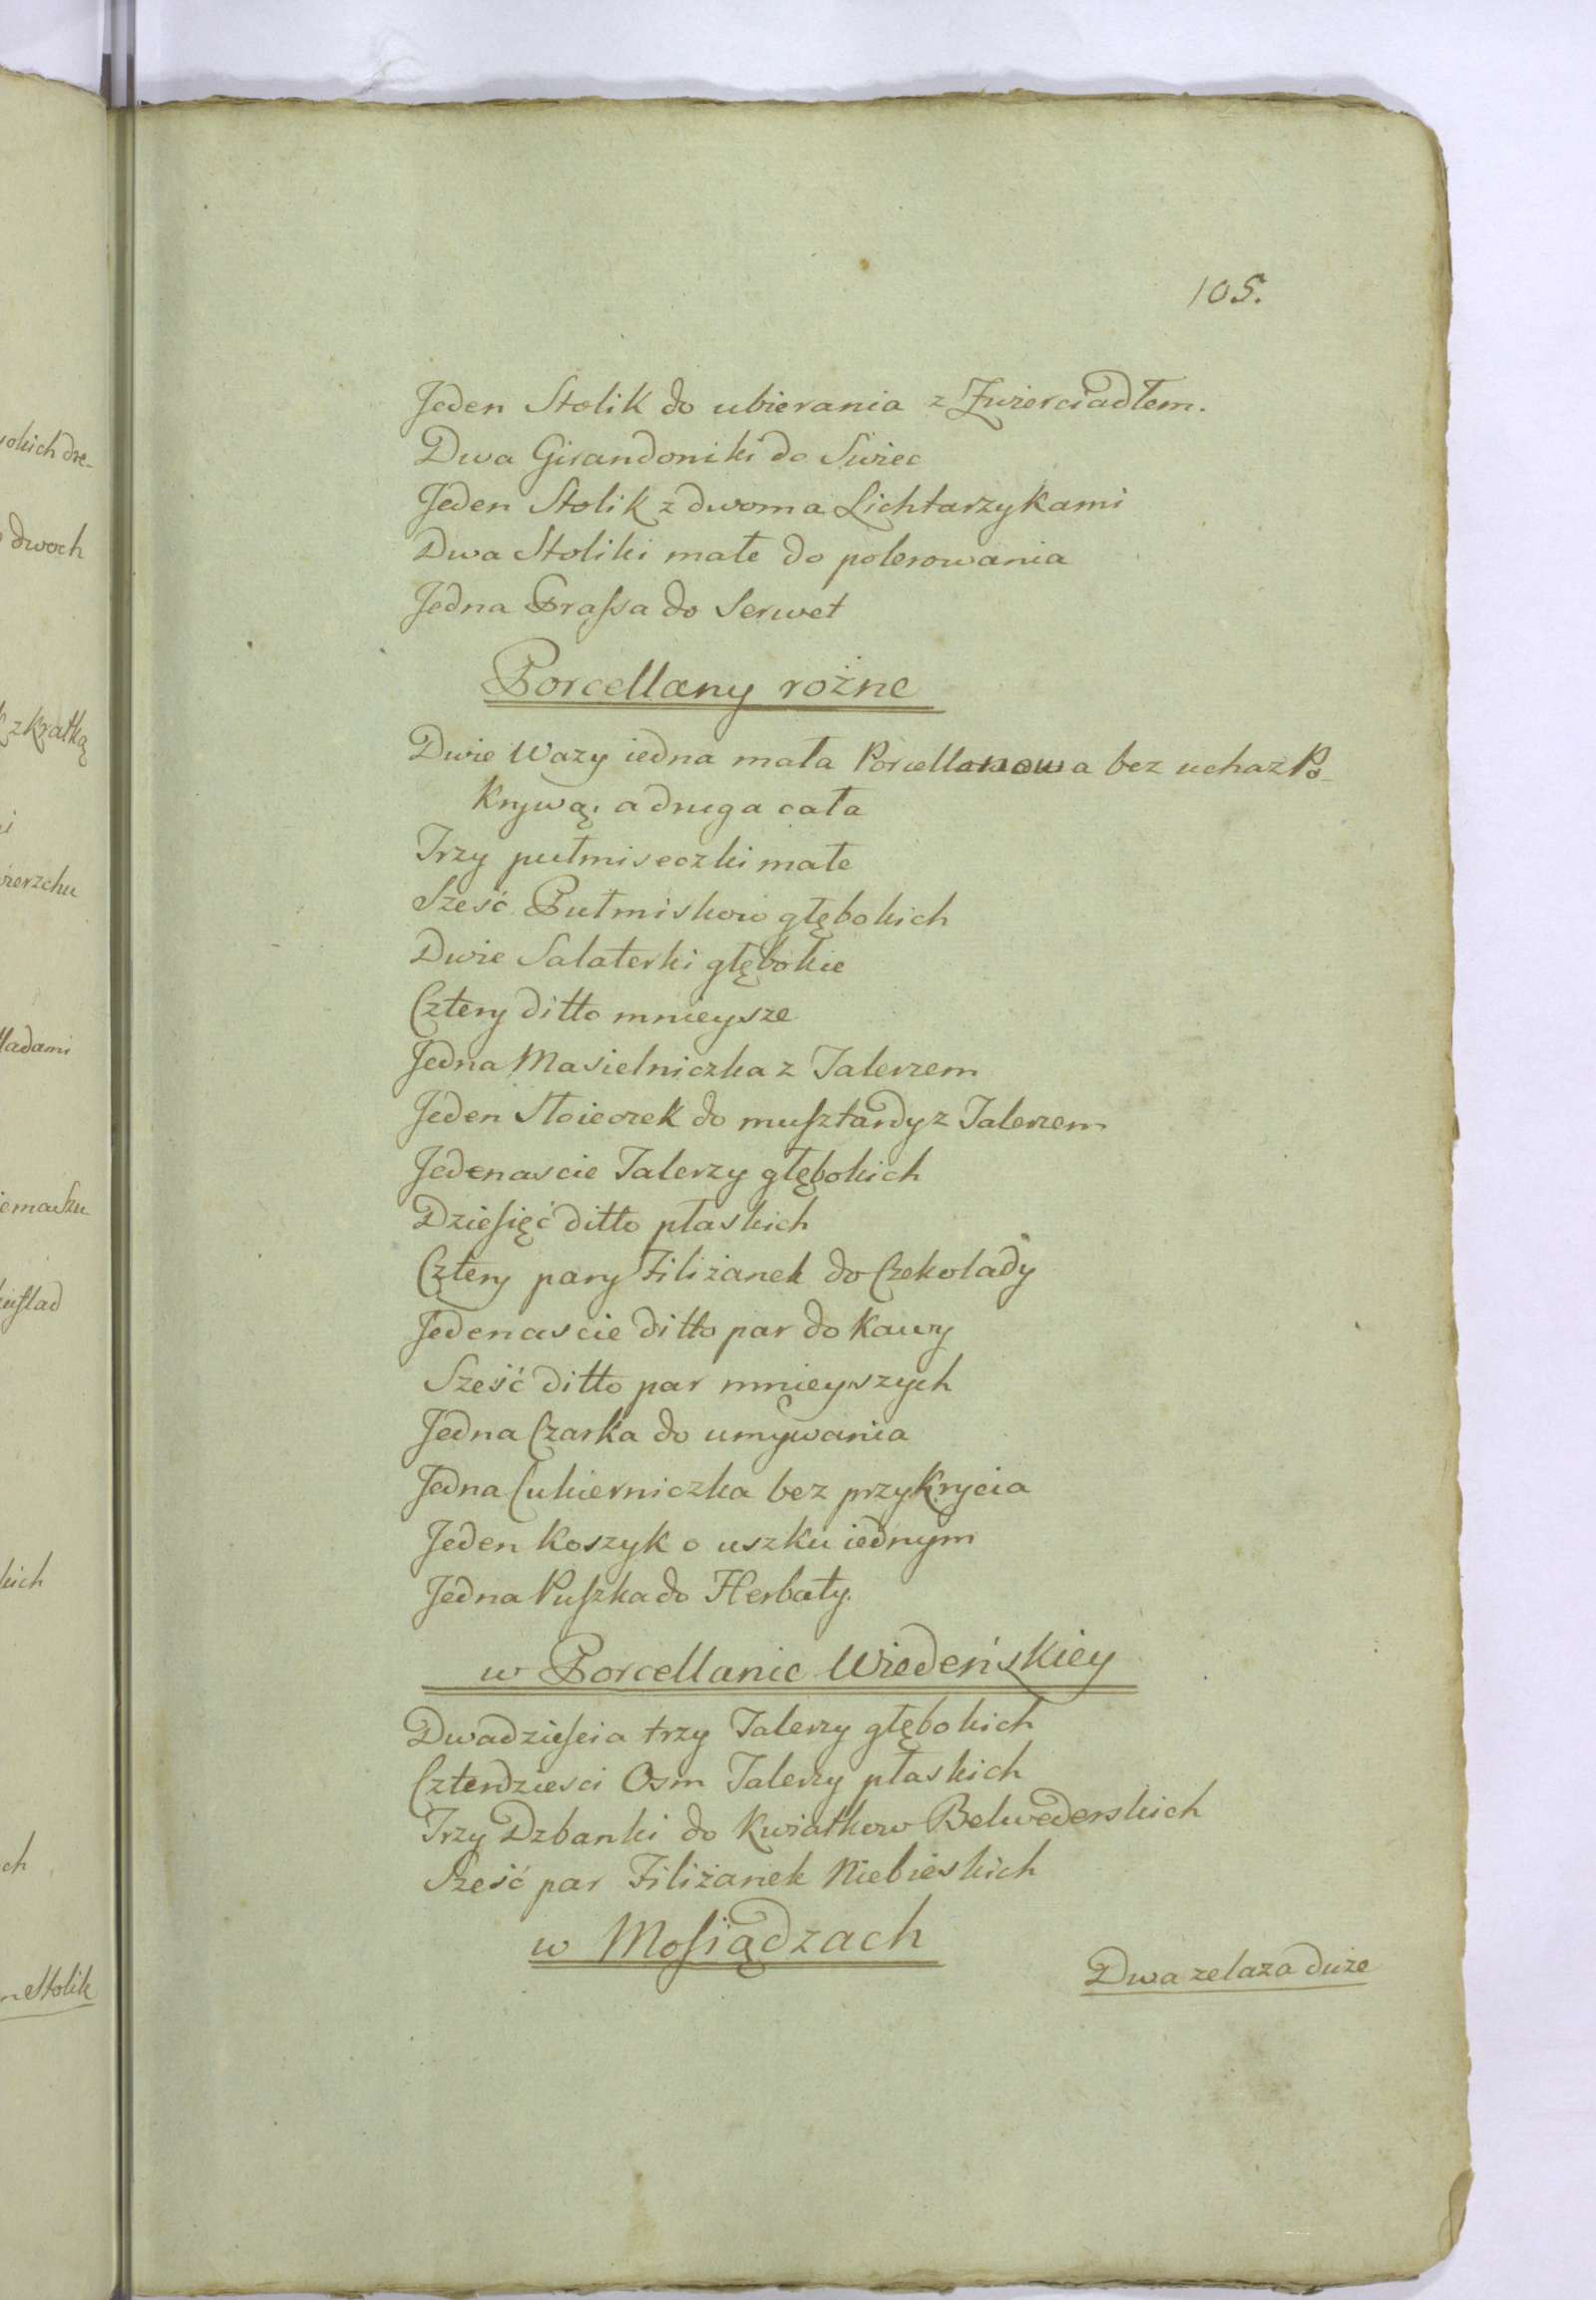 okich dre-
dwoch
z kratką
wierzchu
ladami
kich
ch
n Stolik
105.
Jeden Stolik do ubierania z Zwierciadłem.
Dwa Girandoniki do Swiec
Jeden Stolik z dwoma Lichtarzykami
Dwa Stoliki małe do polerowania
Jedna Prassa do Serwet
Porcellany rożne
Dwie Wazy iedna mała Porcellanowa bez ucha z Po-
krywą, a druga cała
Trzy pułmiseczki małe
Sześć Pułmiskow głębokich
Dwie Salaterki głębokie
Cztery ditto mnieysze
Jedna Masielniczka z Talerzem
Jeden Stoieczek do musztardy z Talerzem
Jedenascie Talerzy głębokich
Dziesięć ditto płaskich
Cztery pary Filiżanek do Czekolady
Jedenascie ditto par do Kawy
Sześć ditto par mnieyszych
Jedna Czarka do umywania
Jedna Cukierniczka bez przykrycia
Jeden Koszyk o uszku iednym
Jedna Puszka do Herbaty.
w Porcellanie Wiedeńskiey
Dwadziescia trzy Talerzy głębokich
Czterdziesci Osm Talerzy płaskich
Trzy Dzbanki do Kwiatkow Belwederskich
Sześć par Filiżanek Niebieskich
w Mosiądzach
Dwa zelaza duże